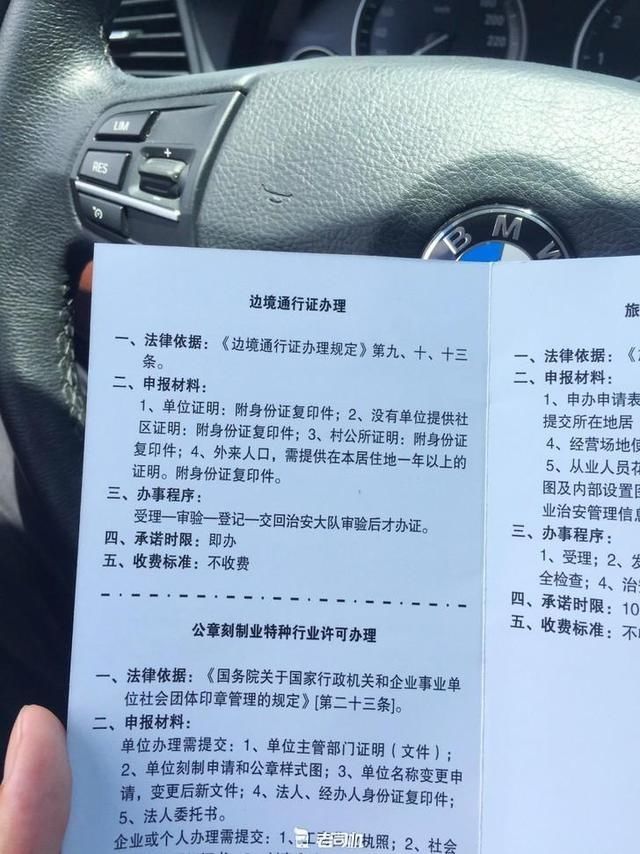 160
180
200
220
2
1
LIM
+
RES
BMW
边境通行证办理
一、法律依据：《边境通行证办理规定》第九、十、十三
条。
二、申报材料：
1、单位证明：附身份证复印件；2、没有单位提供社
区证明：附身份证复印件；3、村公所证明：附身份证
复印件；4、外来人口，需提供在本居住地一年以上的
证明。附身份证复印件。
三、办事程序：
受理—审验—登记—交回治安大队审验后才办证。
四、承诺时限：即办
五、收费标准：不收费
公章刻制业特种行业许可办理
一、法律依据：《国务院关于国家行政机关和企业事业单
位社会团体印章管理的规定》[第二十三条]。
二、申报材料：
单位办理需提交：1、单位主管部门证明（文件）；
2、单位刻制申请和公章样式图；3、单位名称变更申
请，变更后新文件；4、法人、经办人身份证复印件；
5、法人委托书。
企业或个人办理需提交：1、工 执照；2、社会
旅
一、法律依据：《
二、申报材料：
1、申办申请表
提交所在地居
4、经营场地使
5、从业人员花
图及内部设置图
业治安管理信息
三、办事程序：
1、受理；2、发
全检查；4、治
四、承诺时限：10
五、收费标准：不
老司机